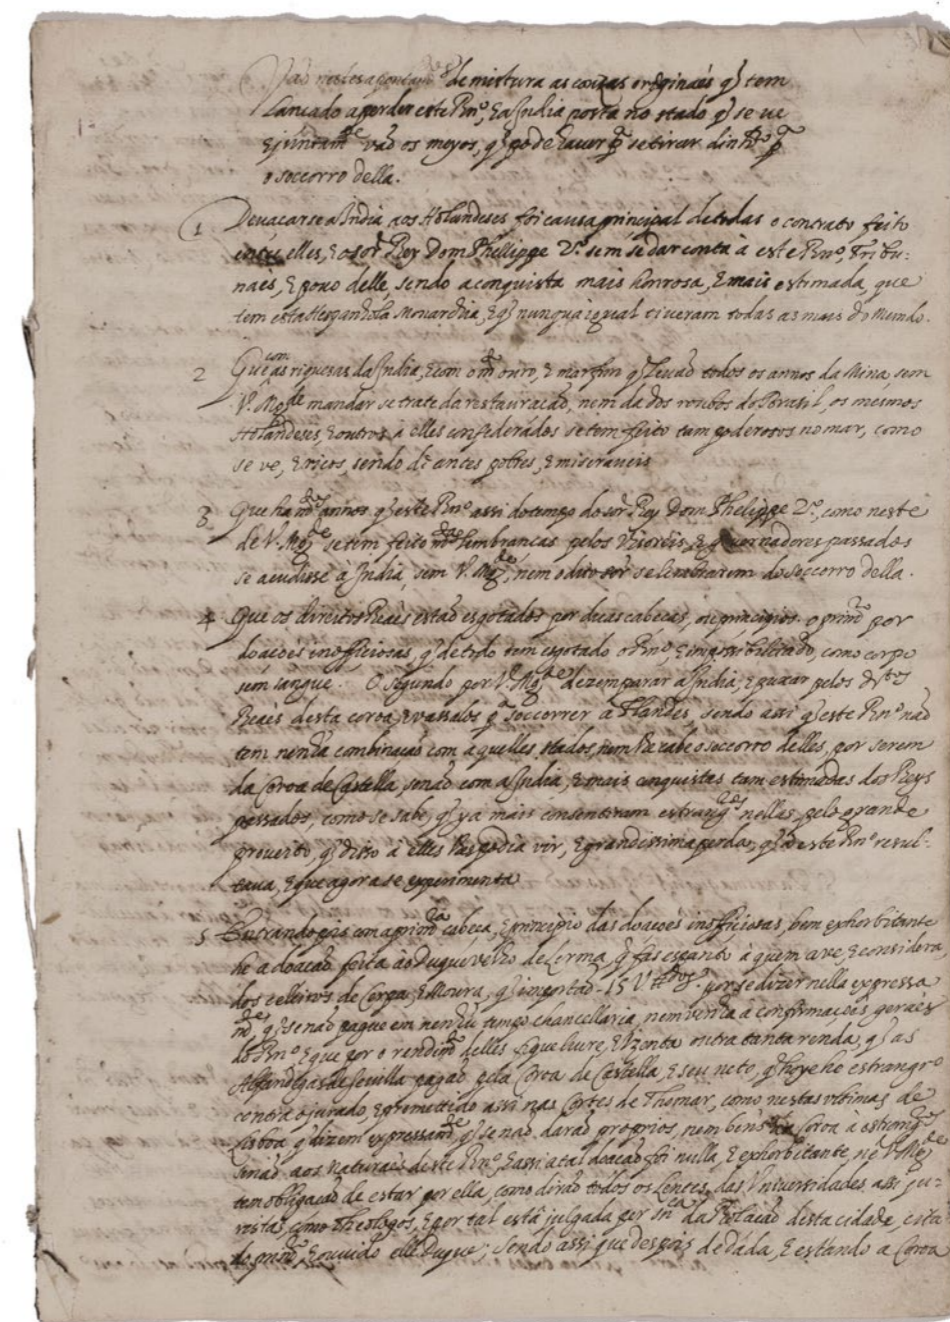 Vaõ nestes apontam.tos de mistura as cousas originaes q̃ tem
Lancado aperder este Rn.º, E a India posta no stado q̃ se ve
E juntam.te vaõ os meyos, q̃ pode hauer p.ª se tirar dinhr.º p.ª
o soccorro della.
1 Deuacarse a India aos Holandeses foi causa principal de todas o contrato feito
entre elles, E o sõr Rey Dom Phellippe 2.º sem se dar conta à este Rn.º, Tribu-
naes, E pouo delle, sendo a conquista mais honrosa, E mais estimada, que
tem esta Hespanhola Monarchia, E q̃ nunqua igual tiueram todas as mais do Mundo.
2 Que com as riquesas da India, E com o m.to ouro, E marfim q̃ Leuaõ todos os annos da Mina, sem
V. Mag.de mandar se trate da restauracaõ, nem da dos roubos do Brasil, os mesmos
Holandeses, E outros à elles confederados se tem feito tam poderosos no mar, como
se ve, E ricos, sendo de antes pobres, E miseraueis
3 Que ha m.tos annos q̃ este Rn.º assi do tempo do sõr Rey Dom Phelippe 2.º, como neste
de V. Mag.de se tem feito m.tas Lembrancas pelos Visoreis, E gouernadores passados
se acudisse à India, sem V. Mag.de, nem o dito sõr se Lembrarem do soccorro della.
4 Que os direitos Reaes estaõ esgotados por duas cabecas, ou principios. o prim.ro por
doacoẽs inofficiosas, q̃ de todo tem esgotado o Rn.º, E impossibilitado, como corpo
sem sangue. O segundo por V. Mag.de dezemparar a India, E puxar pelos d.tos
Reaes desta coroa, E vassalos p.ª soccorrer à Flandes, sendo assi q̃ este Rn.º naõ
tem nenhũa combinacaõ com aquelles stados, nem lhe cabe o soccorro delles, por serem
da Coroa de Castella, senaõ com a India, E mais conquistas tam estimadas dos Reys
passados, como se sabe, q̃ ya mais consentiram estrang.ros nellas, pelo grande
proueito, q̃ disso à elles lhes podia vir, E grandissima perda, q̃ à este Rn.º resul-
taua, E que agora se experimenta
5 Entrando pois com a prim.ra cabeca, E principio das doacoẽs inofficiosas, bem exhorbitante
he a doacaõ feita ao Duque velho de Lerma, q̃ fas espanto à quem a ve, E considera,
dos celleiros de Serpa, E Moura, q̃ importaõ 15 U por se dizer nella expressa
m.te q̃ se naõ pague em nenhũ tempo chancellaria, nem venha à confirmacaõs geraes
do Rn.º E que por o rendim.to delles fique liure, E Izenta outra tanta renda, q̃ as
Alfandegas de Seuilla pagaõ pela Coroa de Castella, E seu neto, q̃ hoye he estrangr.º
contra o jurado, E promettido assi nas Cortes de Thomar, como nestas vltimas de
Lisboa q̃ dizem expressam.te, q̃ se naõ daraõ proprios, nem beñs da Coroa à estrang.ros
senaõ aos naturaes deste Rn.º, E assi a tal doacaõ foi nulla, E exhorbitante, nẽ V. Mag.de
tem obligacaõ de estar por ella, como diraõ todos os Lentes das Vniuersidades assi ju-
ristas, como Theologos, E por tal està julgada per sn.ca da Relacaõ desta cidade, cita-
do prim.º, E ouuido elle Duque; sendo assi que despois de dada, E estando a Coroa